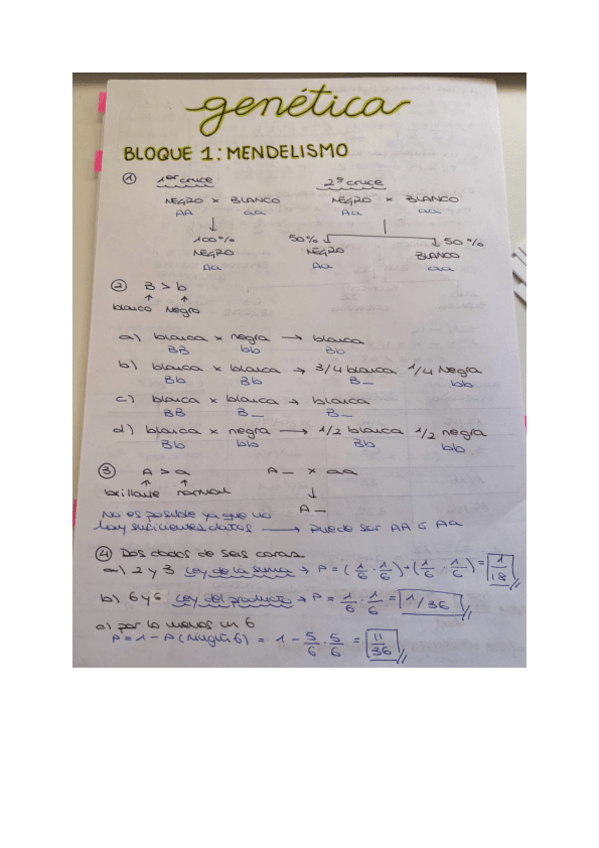 genética
BLOQUE 1: MENDELISMO
① 1er cruce 2º cruce
NEGRO x BLANCO NEGRO x BLANCO
AA aa Aa aa
↓
100% 50% ↓ ↓ 50%
NEGRO NEGRO BLANCO
Aa Aa aa
② B > b
↑ ↑
blanco Negro
a) blanca x negra → blanca
BB bb Bb
b) blanca x blanca → 3/4 blanca 1/4 Negra
Bb Bb B_ bb
c) blanca x blanca → blanca
BB B_ B_
d) blanca x negra → 1/2 blanca 1/2 negra
Bb bb Bb bb
③ A > a A_ x aa
↑ ↑ ↓
brillante normal A_
No es posible ya que no
hay suficientes datos → puede ser AA ó Aa
④ Dos dados de seis caras
a) 2 y 3 Ley de la suma → P = (1/6 · 1/6) + (1/6 · 1/6) = 1/18
b) 6 y 6 Ley del producto → P = 1/6 · 1/6 = 1/36
c) por lo menos un 6
P = 1 - P (Ningún 6) = 1 - 5/6 · 5/6 = 11/36